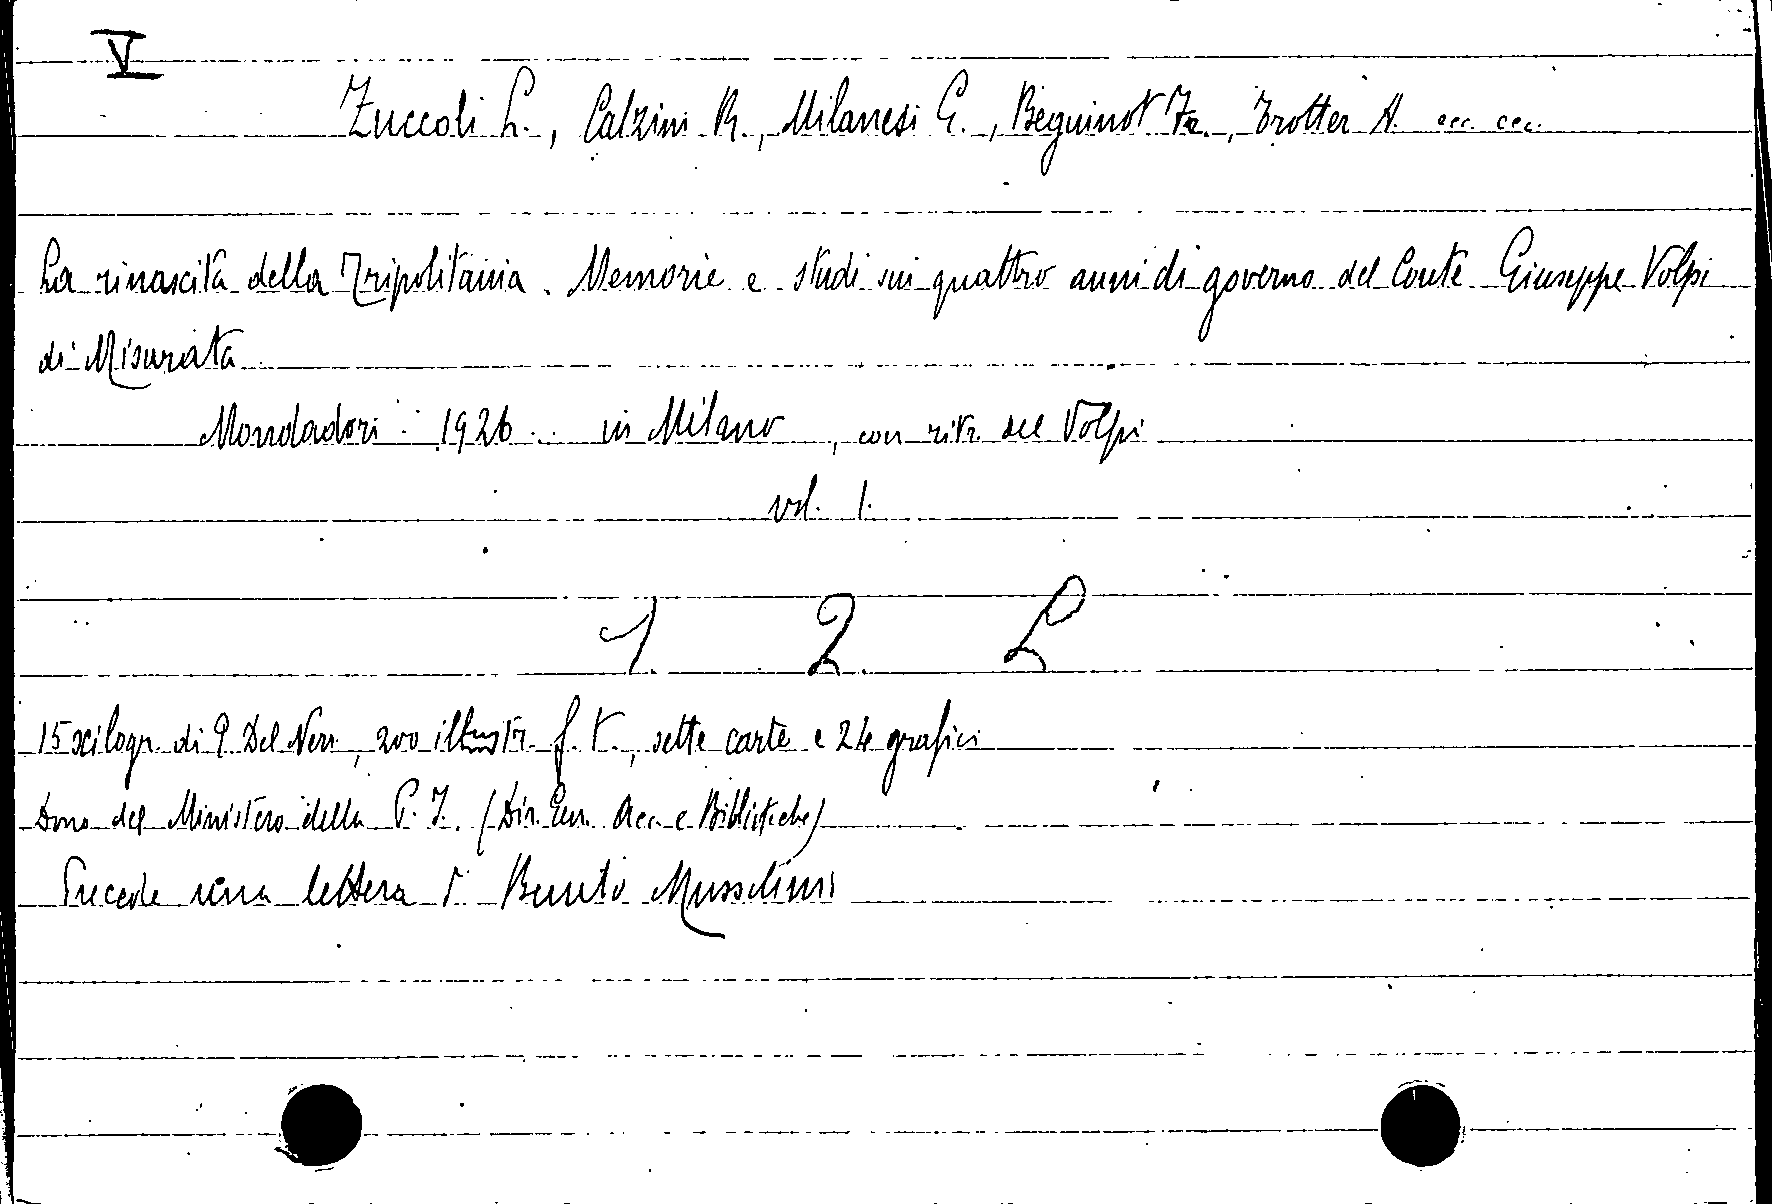 V
Zuccoli L., Calzini R., Milanesi G., Beguinot Fr., Trotter A. ecc. ecc.
La rinascita della Tripolitania. Memorie e studi sui quattro anni di governo del Conte Giuseppe Volpi
di Misurata
Mondadori 1926 in Milano, con ritr. del Volpi
vol. 1.
1. 2. L
15 xilogr. di P. Del Neri, 200 illustr. f. t., sette carte e 24 grafici
Dono del Ministero della P. I. (Dir. Gen. Acc. e Biblioteche)
Precede una lettera di Benito Mussolini